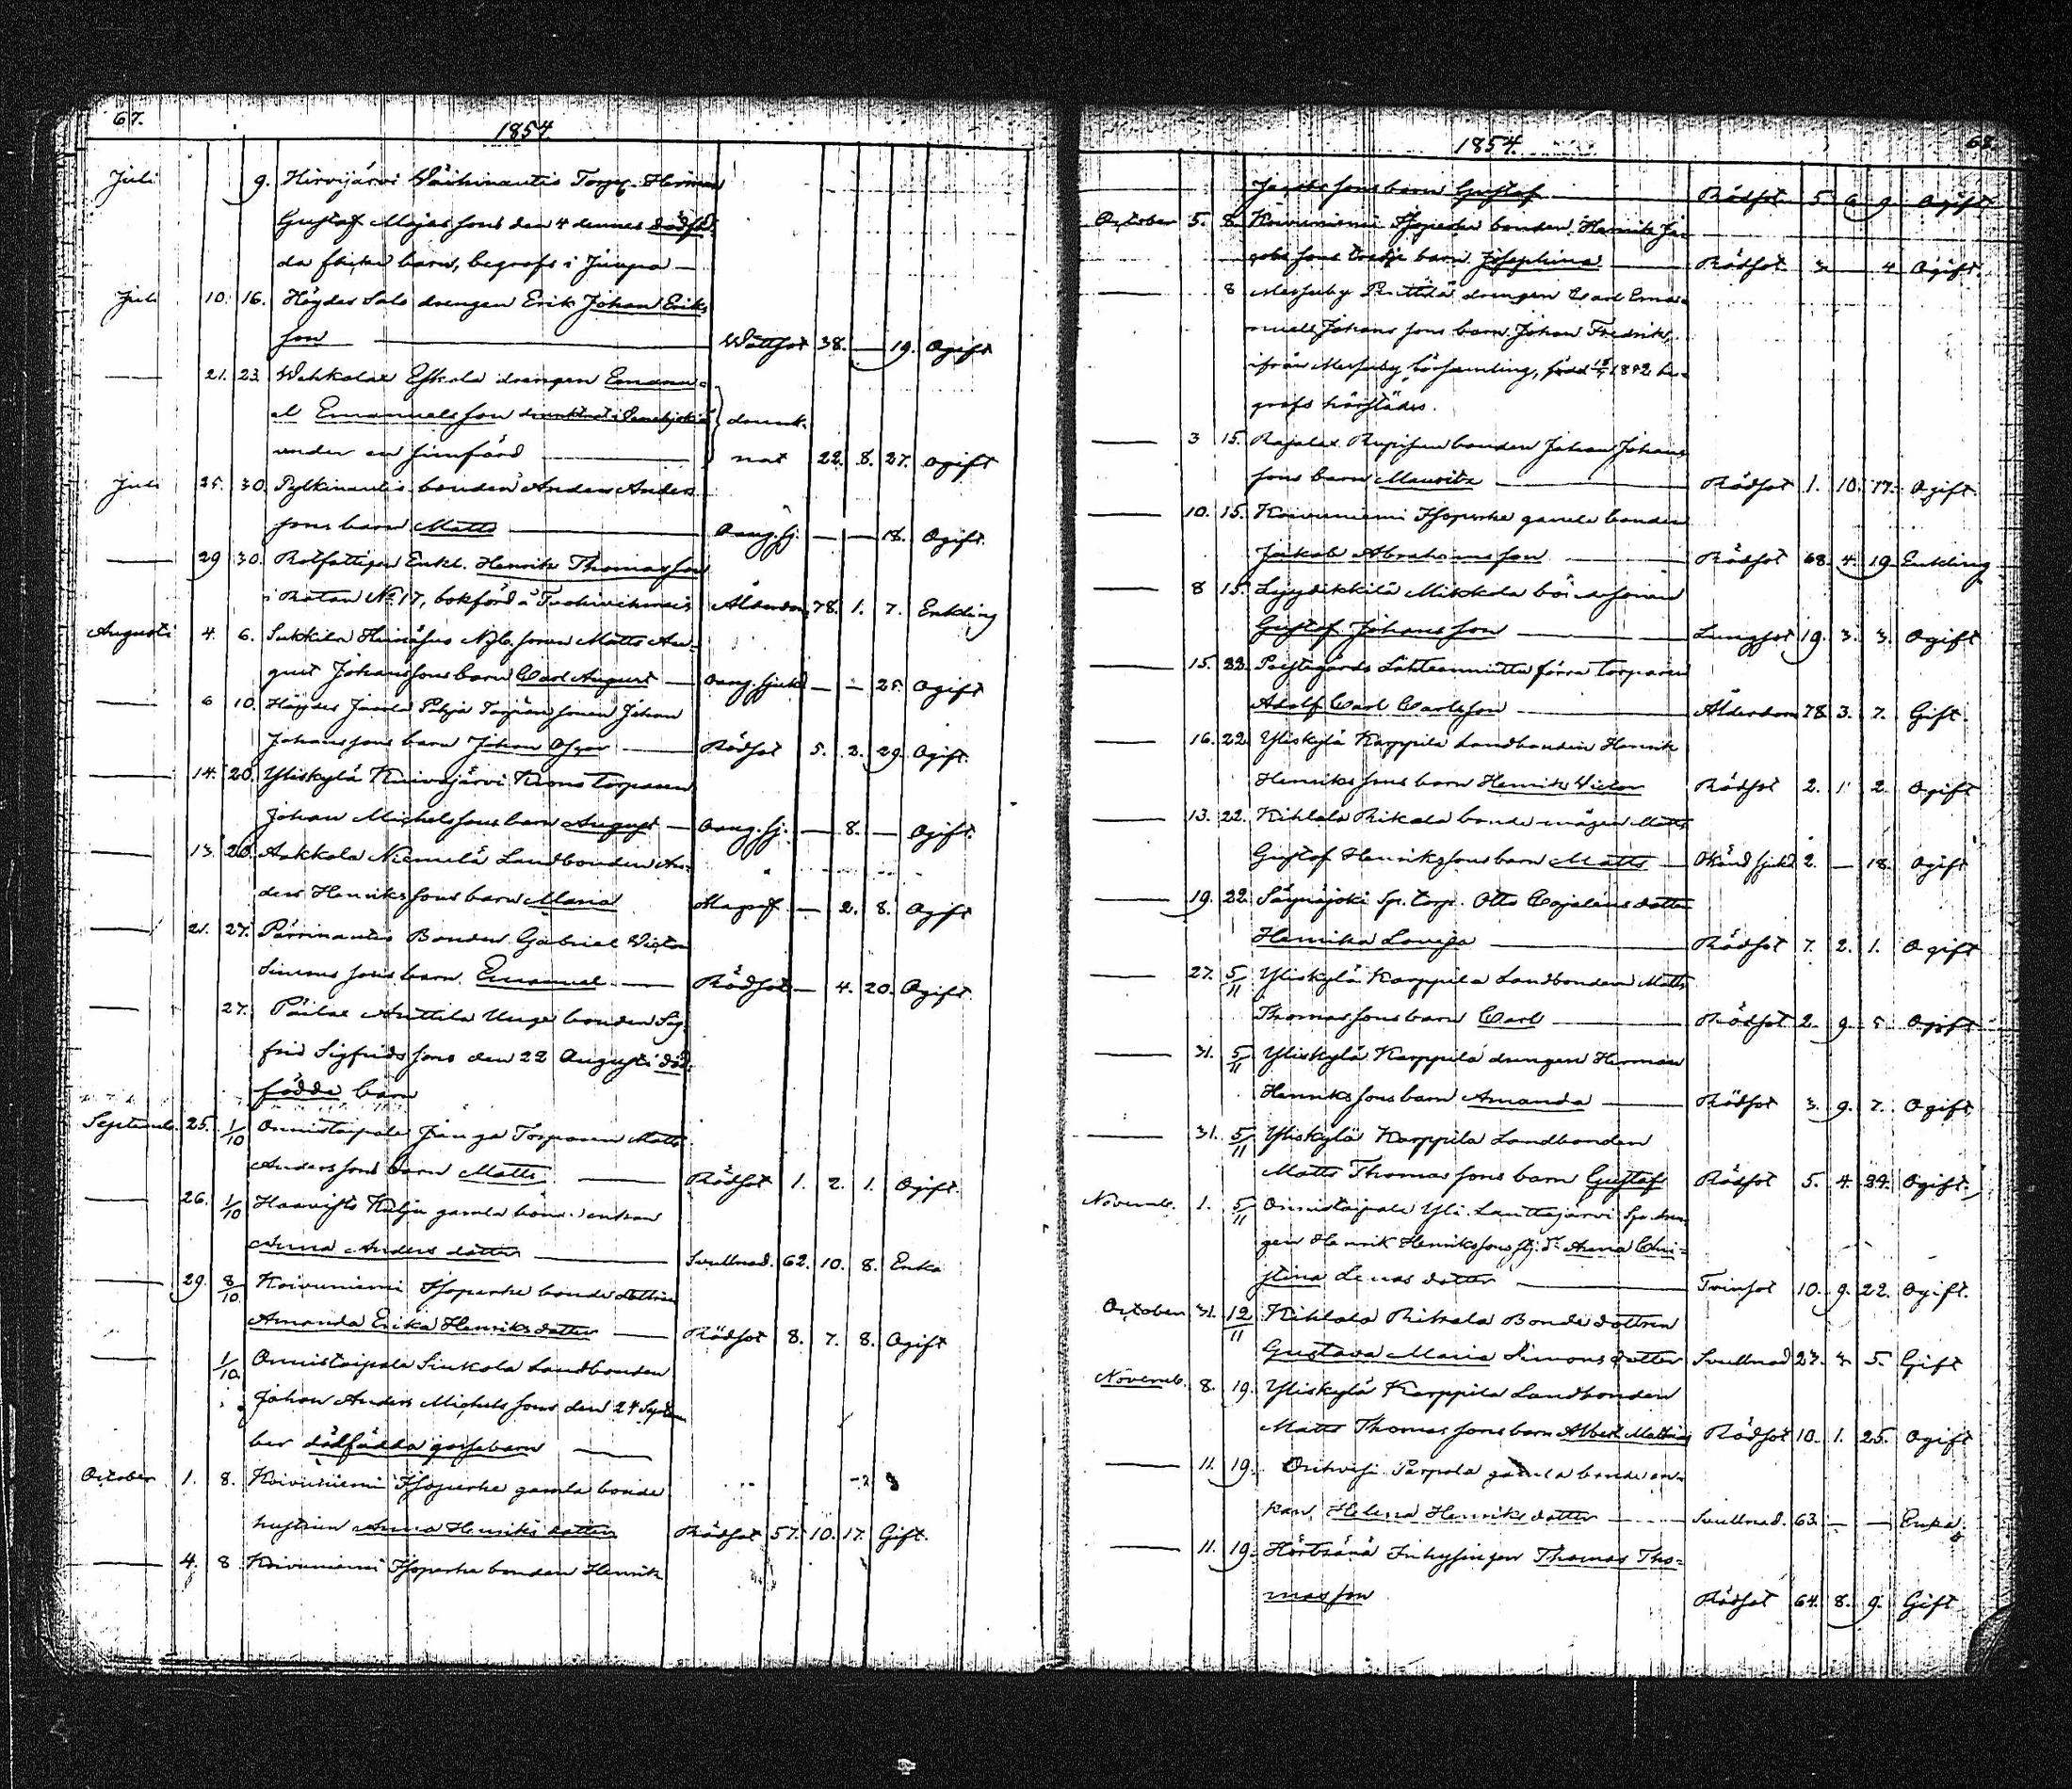 67.
1854.
Juli 9. Hirvijärvi Torp. Herman
Gustaf Majas sons den 4 dennes dödföd-
da flicke barn, begrafs i
Juli 10. 16. Höydes Salo drengen Erik Johan Eriks
son Wattsot 38. — 19. Ogift
— 21. 23. Wehkalax Eskola drengen Emanu-
el Emanuelsson drunk-
under en simfärd nat 22. 8. 27. Ogift
Juli 25. 30. bonden Anders Anders
sons barn Matts Oang. sj. — — 18. Ogift.
— 29 30. Rotfattigen Enkl. Henrik Thomasson
i Rotan No 17, bokförd å Ålderdom 78. 1. 7. Enkling
Augusti 4. 6. Sukkila Nyb. sonen Matts Au-
gust Johanssons barn Carl August — Oang. sjukd — — 25. Ogift
— 6 10. Höydes Jarola sonen Johan
Johanssons barn Johan Rödsot 5. 2. 29. Ogift.
— 14. 20. Yliskylä Kuivajärvi Krons torparen
Johan Michelssons barn August — Oang. sj. — 8. — Ogift.
— 13. 20. Aakkola Niemelä Landbonden An-
ders Henrikssons barn Maria — 2. 8. Ogift
— 21. 27. Bonden Gabriel Victor
Simonssons barn Emanuel — Rödsot — 4. 20. Ogift.
— 27. Anttila Unge bonden Sig-
frid Sigfridssons den 22 Augusti död-
födde barn
Septemb. 25. 1/10 Onnistaipale Torparen Matts
Anderssons barn Matts — Rödsot 1. 2. 1. Ogift.
— 26. 1/10 Haavisto gamla bond enkan
Anna Anders dotter — Svullnad. 62. 10. 8. Enka
— 29. 8/10. Koivuniemi Isoperhe bonde dottren
Amanda Erika Henriksdotter — Rödsot 8. 7. 8. Ogift
— 1/10. Onnistaipale Sinkola Landbonden
Johan Anders Michelssons den 24 Septem
ber dödfödda gossebarn —
October 1. 8. Koivuniemi Isoperhe gamla bonde
hustrun Anna Henriksdotter Rödsot 57. 10. 17. Gift.
— 4. 8 Koivuniemi Isoperhe bonden Henrik
1854. 68.
Jacobssons barn Gustaf Rödsot 5. 6. 9. Ogift
October 5. 8. Koivuniemi Isoperhe bonden Henrik Ja-
cobssons tredje barn Josephina — Rödsot 3. — 4 Ogift.
— 8 Merjerby drengen Carl Ema-
nuel Johanssons barn Johan Fredrik,
ifrån församling, född be-
grafs härstädes.
— 3 15. Rajalax bonden Johan Johans
sons barn Mauritz — Rödsot 1. 10. 17. Ogift.
— 10. 15. Koivuniemi Isoperhe gamla bonden
Jakob Abrahamsson — Rödsot 68. 4. 19. Enkling
— 8 15. Mikkola bondesonen
Gustaf Johansson — Lungsot 19. 3. 3. Ogift
— 15. 22. Prestegårds Lähteenmitta förra torparen
Adolf Carl Carlsson — Ålderdom 78. 3. 7. Gift.
— 16. 22. Yliskylä Karppila Landbonden Henrik
Henrikssons barn Henrik Victor Rödsot 2. 1. 2. Ogift
— 13. 22. Kihlala Rikala bonde mågen Matts
Gustaf Henrikssons barn Matts — Okänd sjukd 2. — 18. Ogift
— 19. 22. Särnäjoki Sp. torp. Otto Cajaléns dotter
Henrika Lovisa — Rödsot 7. 2. 1. Ogift
— 27. 5/11 Yliskylä Karppila Landbonden Matts
Thomassons barn Carl — Rödsot 2. 9. 5. Ogift
— 31. 5/11 Yliskylä Karppila drengen Herman
Henrikssons barn Amanda — Rödsot 3. 9. 7. Ogift
— 31. 5/11 Yliskylä Karppila Landbonden
Matts Thomassons barn Gustaf Rödsot 5. 4. 29. Ogift.
Novemb. 1. 5/11 Onnistaipale Yli Lauttajärvi Sp. dren-
gen Henrik Henrikssons Anna Chri-
stina dotter — Tvinsot 10. 9. 22. Ogift.
October 31. 12/11 Kihlala Rikala Bonde dottren
Gustava Maria Simonsdotter Svullnad 27. 3. 5. Gift
Novemb. 8. 19. Yliskylä Karppila Landbonden
Matts Thomassons barn Albert Mathias Rödsot 10. 1. 25. Ogift
— 11. 19. Orihvesi Parpola gamla bonde en-
kan Helena Henriksdotter — Svullnad. 63. — — Enka.
— 11. 19. Hörtsänä Inhysingen Thomas Tho-
masson Rödsot 64. 8. 9. Gift